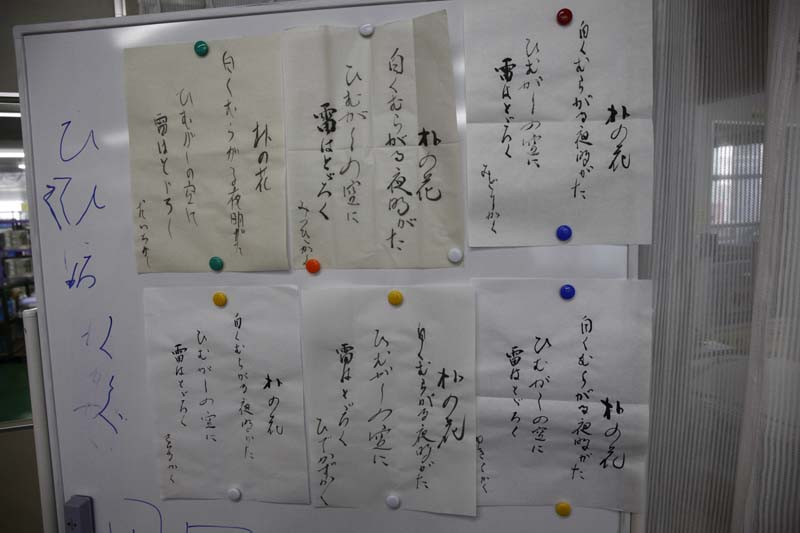 朴の花
白くむらがる夜明がた
ひむがしの空に
雷はとゞろく
みどりかく
朴の花
白くむらがる夜明がた
ひむがしの空に
雷はとゞろく
朴の花
白くむらがる夜明がた
ひむがしの空に
雷はとゞろく
朴の花
白くむらがる夜明がた
ひむがしの空に
雷はとゞろく
朴の花
白くむらがる夜明がた
ひむがしの空に
雷はとゞろく
朴の花
白くむらがる夜明がた
ひむがしの空に
雷はとゞろく